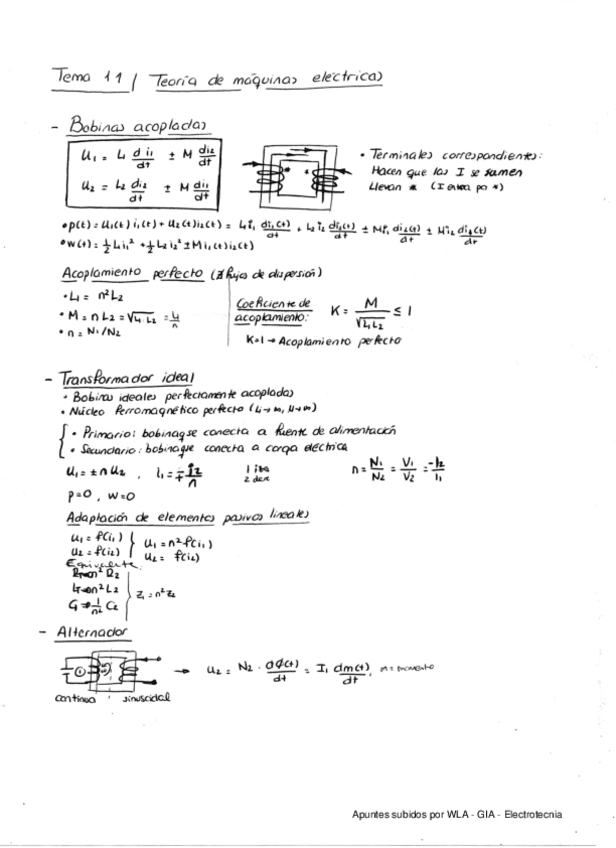 Tema 11 / Teoría de máquinas eléctricas
- Bobinas acopladas
U₁ = L₁ di₁/dt ± M di₂/dt
U₂ = L₂ di₂/dt ± M di₁/dt
• Terminales correspondientes:
Hacen que las I se sumen
Llevan * (I entra por *)
• p(t) = U₁(t) i₁(t) + U₂(t) i₂(t) = L₁i₁ di₁(t)/dt + L₂ i₂ di₂(t)/dt ± Mi₁ di₂(t)/dt ± Mi₂ di₁(t)/dt
• w(t) = ½ L₁i₁² + ½ L₂ i₂² ± M i₁(t) i₂(t)
Acoplamiento perfecto (∄ flujo de dispersión)
• L₁ = n² L₂
• M = n L₂ = √L₁ L₂ = L₁/n
• n = N₁/N₂
Coeficiente de
acoplamiento: K = M/√L₁L₂ ≤ 1
K=1 → Acoplamiento perfecto
- Transformador ideal
• Bobinas ideales perfectamente acopladas
• Núcleo ferromagnético perfecto (L₁→∞, μ→∞)
• Primario: bobina q se conecta a fuente de alimentación
• Secundario: bobina que conecta a carga eléctrica
U₁ = ± n U₂ , i₁ = ∓ i₂/n
n = N₁/N₂ = V₁/V₂ = -I₂/I₁
p=0 , w=0
Adaptación de elementos pasivos lineales
U₁ = f(i₁)
U₂ = f(i₂)
U₁ = n² f(i₁)
U₂ = f(i₂)
Equivalente:
R₁→n² R₂
L₁→n² L₂
C₁→ 1/n² C₂
Z₁ = n² Z₂
- Alternador
→ U₂ = N₂ · dϕ(t)/dt = I₁ dm(t)/dt, m = momento
continua
sinusoidal
Apuntes subidos por WLA - GIA - Electrotecnia